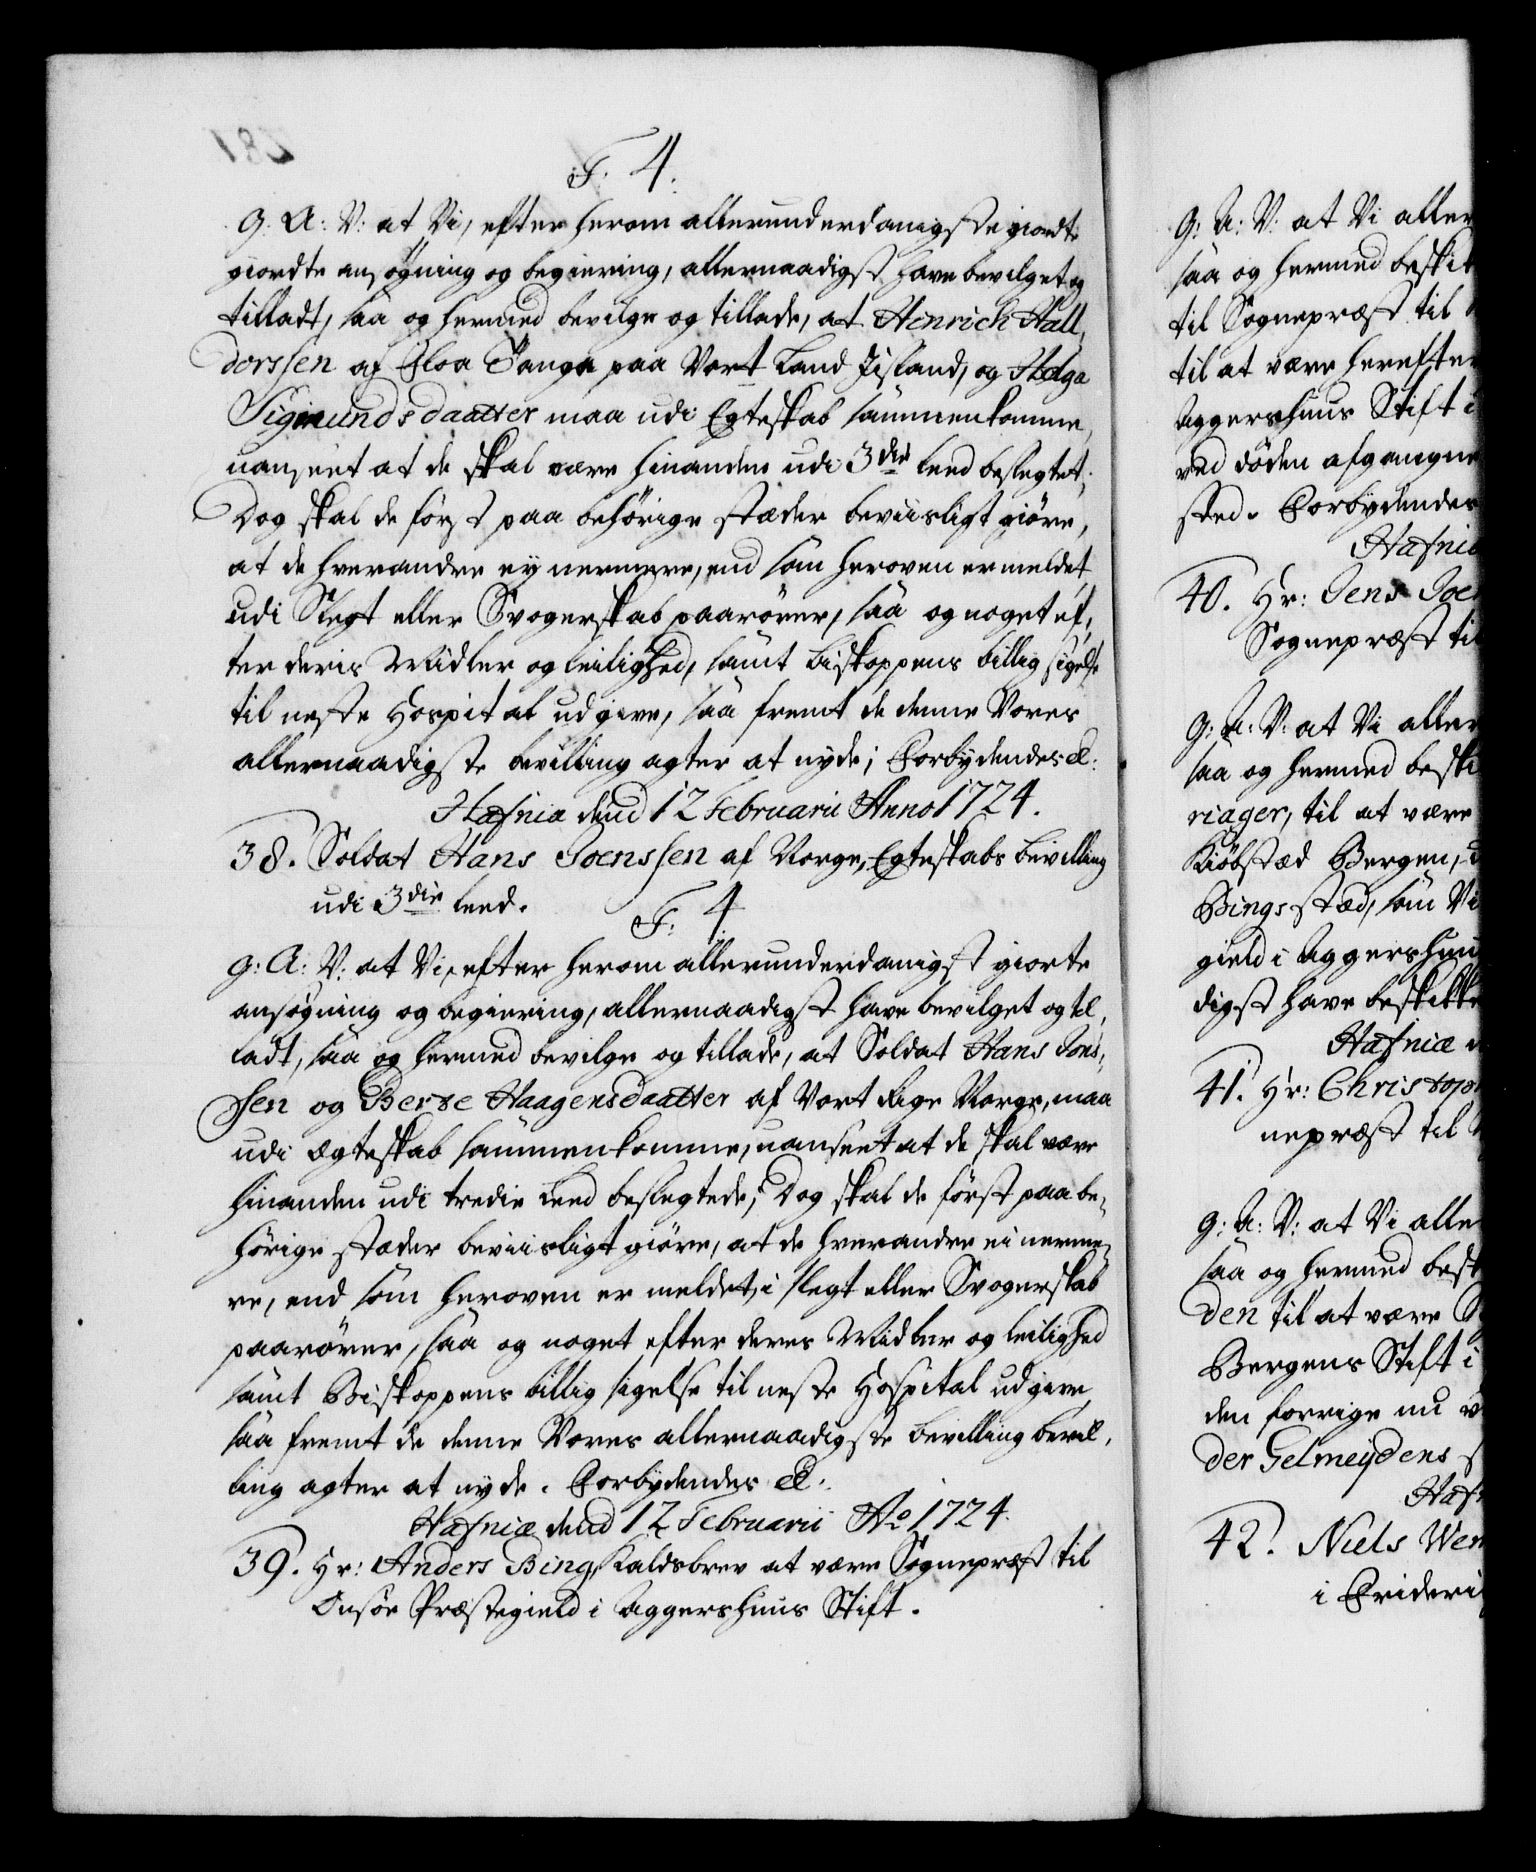 F. 4.
G: A: V: at Vi, efter herom allerunderdanigste giordte
giordte ansøgning og begiering, allernaadigst have bevilget og
tilladt, saa og hermed bevilge og tillade, at Henrich Hall,
dorssen af Floa Tanga paa Vort Land Iisland, og Helga
Sigmunds daatter maa udi Egteskab sammenkomme,
uanseet at de skal være hinanden udi 3die leed beslegtet;
Dog skal de først paa behörige stæder beviisligt giöre,
at de hverandre ey nermere, end som heroven ermeldet
udi Slegt eller Svogerskab paarörer, saa og noget ef,
ter deris Midler og leilighed, samt Biskoppens billig sigelse
til neste Hospital udgive, saa fremt de denne Vores
allernaadigste bevilling agter at nyde; Forbydendes &:
Hafnia dend 12 Februarii Anno 1724.
38. Soldat Hans Joenssen af Norge, Egteskabs bevilling
udi 3die leed.
F. 4.
G: A: V: at Vi, efter herom allerunderdanigst giorte
ansøgning og begiering, allernaadigst have bevilget og til,
ladt, saa og hermed bevilge og tillade, at Soldat Hans Jons,
sen og Berte Haagensdaatter af Vort Rige Norge, maa
udi Ægteskab sammenkomme, uanseet at de skal være
hinanden udi tredie Leed beslegtede; Dog skal de först paa be,
hörige stæder beviisligt giöre, at de hverandre ei nerme,
re, end som heroven er meldet, i slegt eller Svogerskab
paarörer, saa og noget efter deres Midler og leilighed
samt Biskoppens billig sigelse til neste Hospital udgive,
saa fremt de denne Vores allernaadigste bevilling bevil,
ling agter at nyde. Forbydendes &:
Hafniæ dend 12 Februarii Ao 1724.
39. Hr: Anders Bing, Kaldsbrev at være Sognepræst til
Onsöe Præstegield i Aggershuus Stift.
G: A: V: at Vi aller
saa og hermed beskik
til Sognepræst til
til at være herefter
Aggershuus Stift i
ved döden afgangne
sted. Forbydendes
Hafnia
40. Hr: Jens Joe
Sognepræst til
G: A: V: at Vi aller
saa og hermed beski
riager, til at være
Kiöbstæd Bergen,
Bings stæd, som Vi
gield i Aggershuu
digst have beskikke
Hafniæ
41. Hr: Christop
nepræst til
G: A: V: at Vi alle
saa og hermed besk
den til at være
Bergens Stift i
den forrige nu
der Gelmeydens
Haf
42. Niels Wen
i Frideri